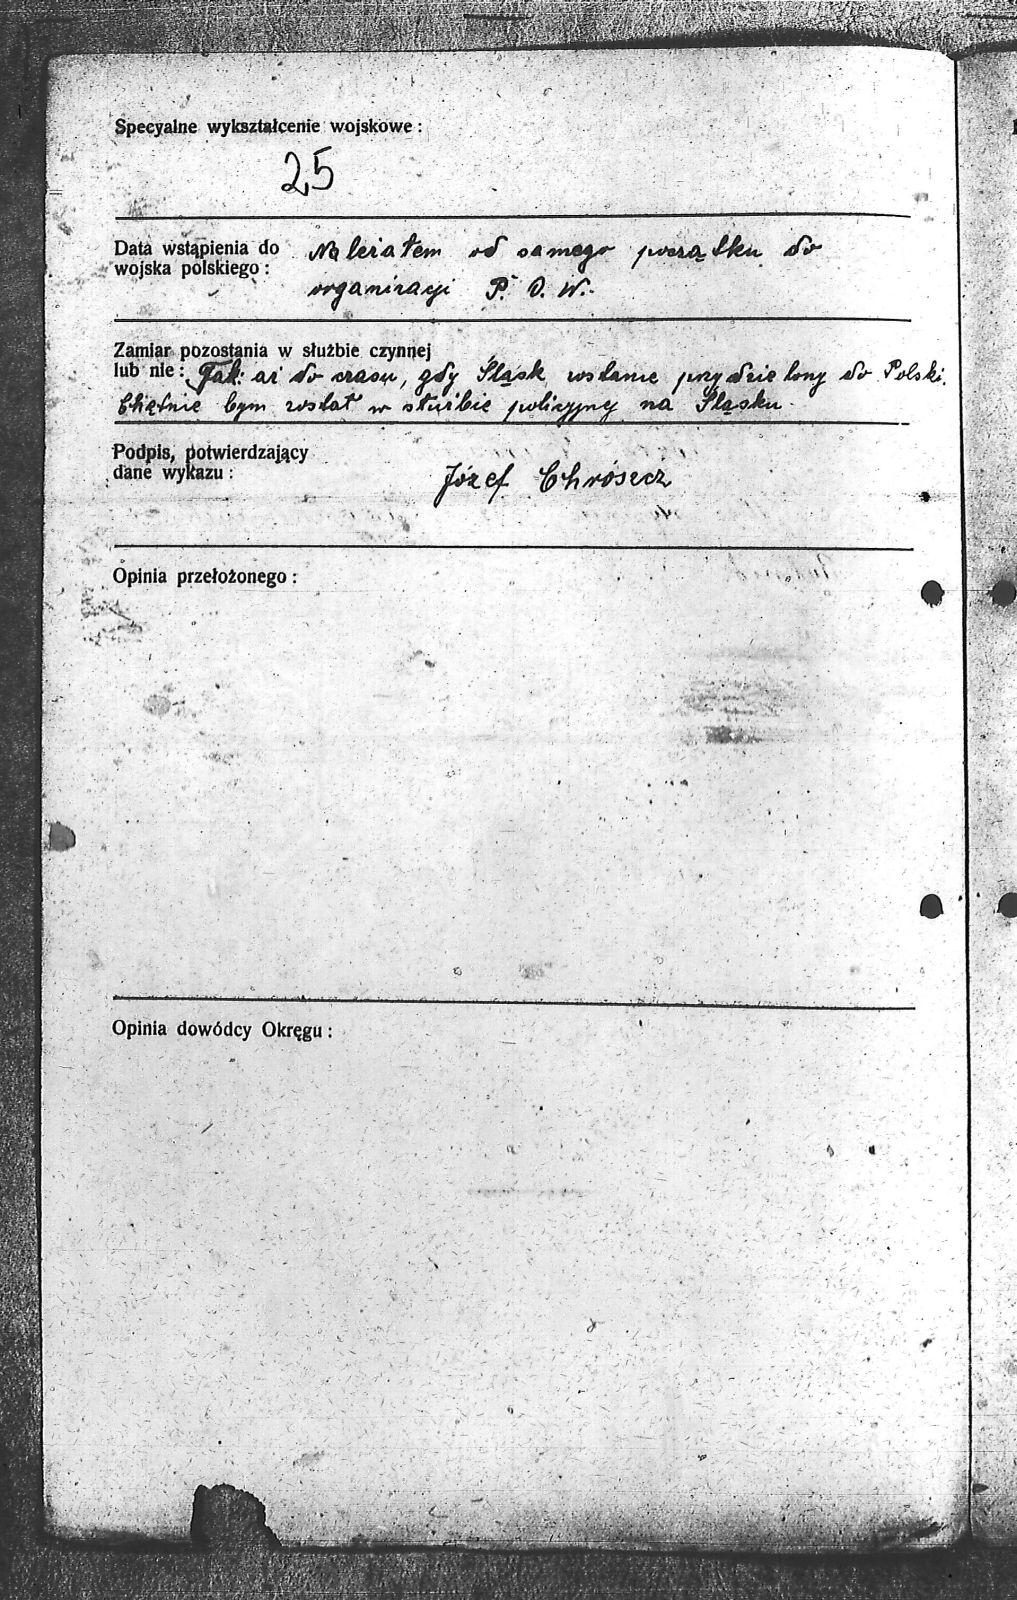 Specyalne wykształcenie wojskowe:
25
Data wstąpienia do
wojska polskiego:
Należałem od samego początku do
organizacji P. O. W.
Zamiar pozostania w służbie czynnej
lub nie: Tak: aż do czasu, gdy Śląsk zostanie przydzielony do Polski.
Chętnie bym został w służbie policyjnej na Śląsku.
Podpis, potwierdzający
dane wykazu:
Józef Chrószcz
Opinia przełożonego:
Opinia dowódcy Okręgu: